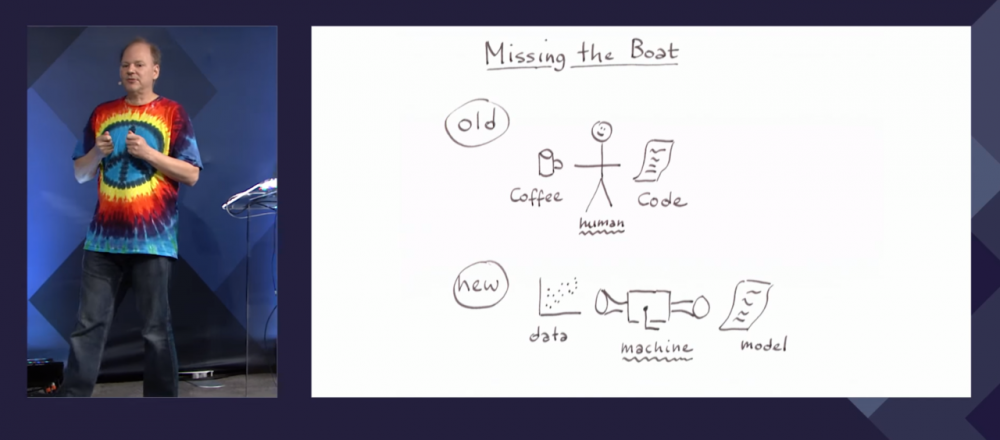 Missing the Boat
old
Coffee
Code
human
new
data
machine
model